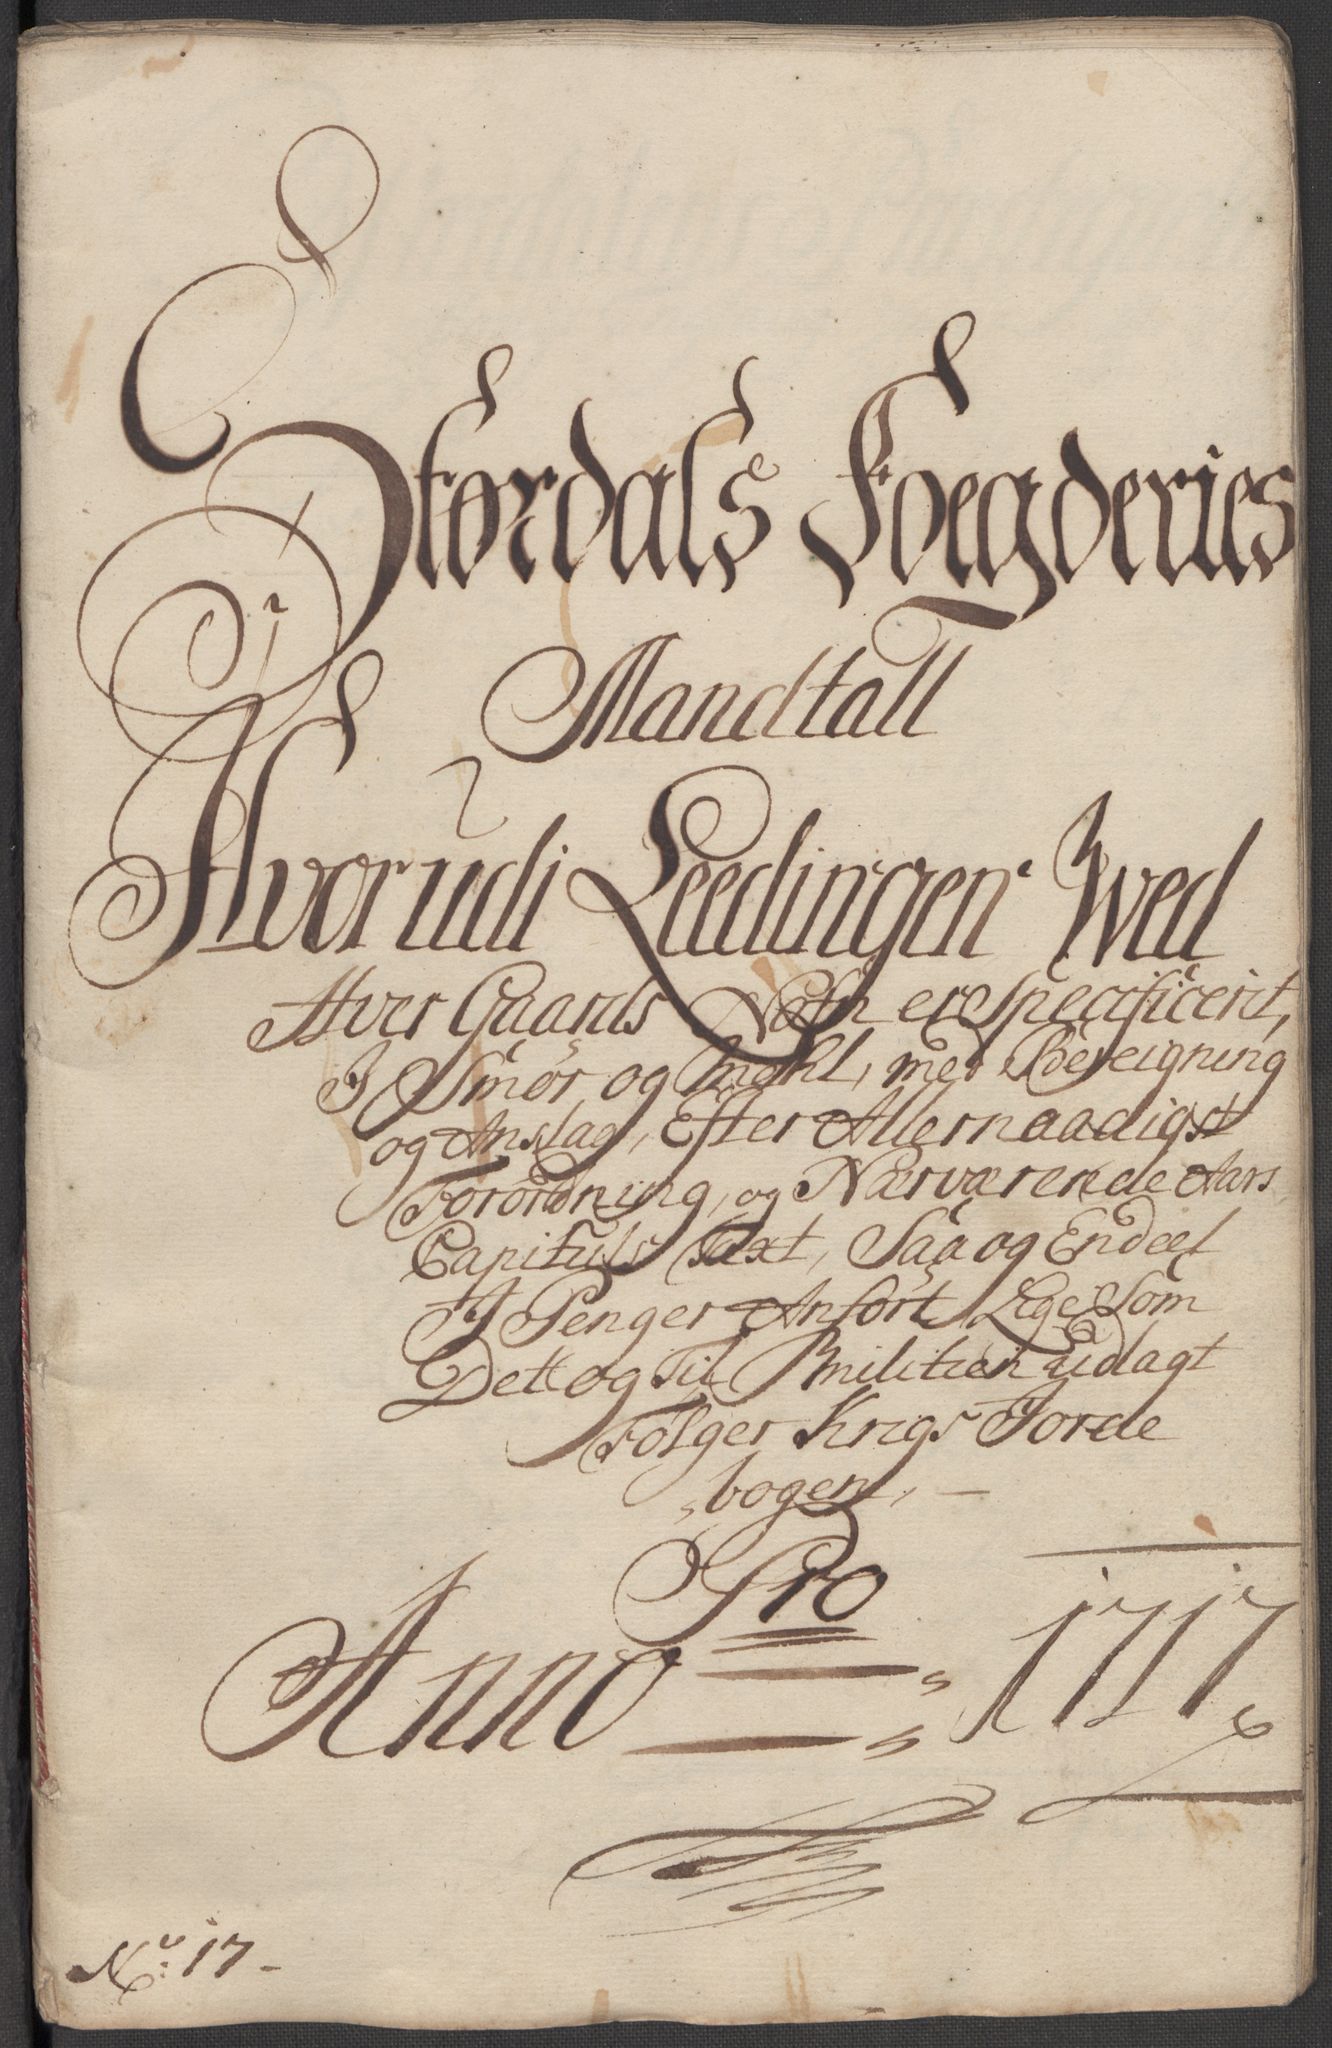 Stördals Foegderies
Mandtall
Hvorudi Leedingen Wed
Hver Gaards Nafn er Specificerit,
I Smör og Mehl, med Bereigning
og Anslag, Efter Allernaadigst
Forordning, og Nærværende Aars
Capituls Taxt, Saa og Endeel
I Penger Anfört, Lige Som
Dett og Til Militien udlagt
Fölger Krigs Jorde
bogen, —
Pro
Anno 1717
No: 17-